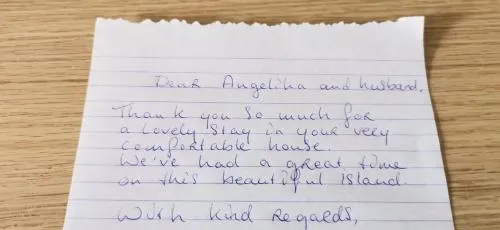 Dear Angelika and husband,
Thank you so much for
a lovely stay in your very
comfortable house.
We've had a great time
on this beautiful Island.
With kind regards,